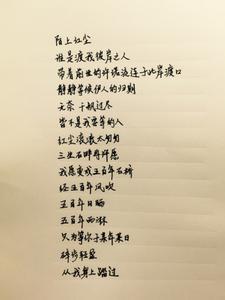 陌上红尘
谁是渡我彼岸之人
带着前世的许诺流连于此岸渡口
静静等候伊人的归期
无奈 千帆过尽
皆不是我要等的人
红尘滚滚太匆匆
三生石畔再许愿
我愿变成五百年石桥
经五百年风吹
五百年日晒
五百年雨淋
只为等你于某年某日
碎步轻盈
从我身上踏过